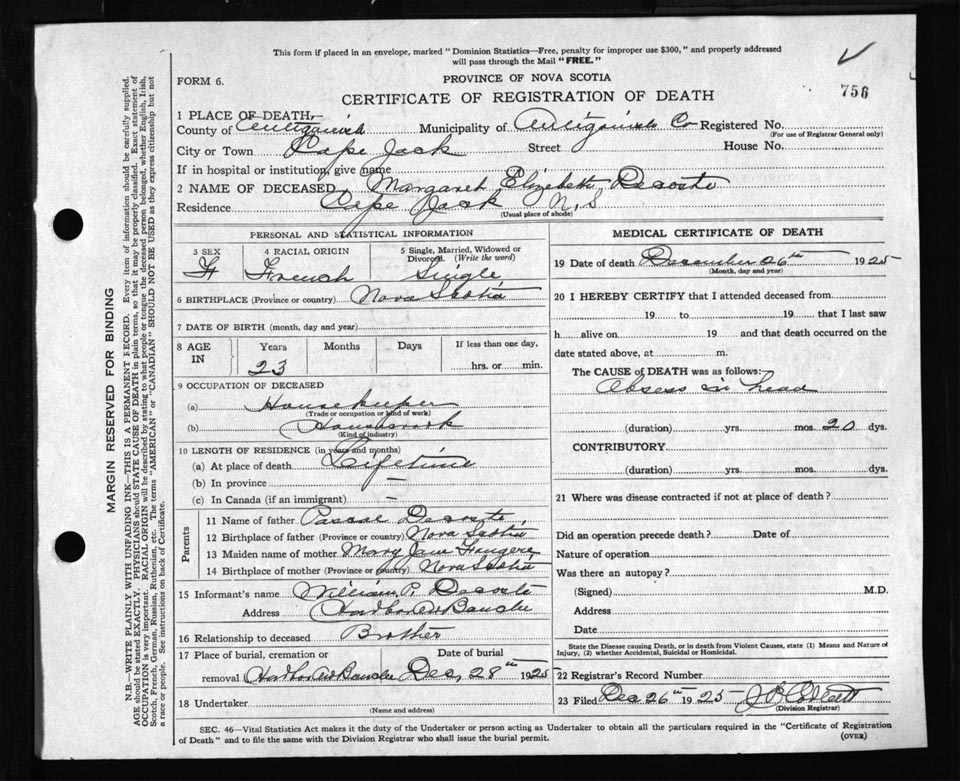 This form if placed in an envelope, marked "Dominion Statistics—Free, penalty for improper use $300," and properly addressed
will pass through the Mail "FREE."
756
FORM 6.
PROVINCE OF NOVA SCOTIA
CERTIFICATE OF REGISTRATION OF DEATH
1 PLACE OF DEATH,
County of Antigonish Municipality of Antigonish Co Registered No.
(For use of Registrar General only)
City or Town Cape Jack Street House No.
If in hospital or institution, give name
2 NAME OF DECEASED Margaret Elizabeth Decoste
Residence Cape Jack N.S
(Usual place of abode)
PERSONAL AND STATISTICAL INFORMATION
3 SEX 4 RACIAL ORIGIN 5 Single, Married, Widowed or
Divorced. (Write the word)
F French Single
6 BIRTHPLACE (Province or country) Nova Scotia
7 DATE OF BIRTH (month, day and year)
8 AGE IN Years Months Days If less than one day,
23 hrs. or min.
9 OCCUPATION OF DECEASED
(a) Housekeeper
(Trade or occupation or kind of work)
(b) Housework
(Kind of industry)
10 LENGTH OF RESIDENCE (in years and months)
(a) At place of death Lifetime
(b) In province —
(c) In Canada (if an immigrant) —
Parents
11 Name of father Pascal Decoste
12 Birthplace of father (Province or country) Nova Scotia
13 Maiden name of mother Mary Jane
14 Birthplace of mother (Province or country) Nova Scotia
15 Informant's name William P. Decoste
Address Harbor Au Bouche
16 Relationship to deceased Brother
17 Place of burial, cremation or Date of burial
removal Harbor Au Bouche Dec, 28th 1925
18 Undertaker
(Name and address)
MEDICAL CERTIFICATE OF DEATH
19 Date of death December 26th 1925
(Month, day and year)
20 I HEREBY CERTIFY that I attended deceased from
19 to 19 that I last saw
h alive on 19 and that death occurred on the
date stated above, at m.
The CAUSE OF DEATH was as follows:
Absess in head
(duration) yrs. mos. 20 dys.
CONTRIBUTORY
(duration) yrs. mos. dys.
21 Where was disease contracted if not at place of death?
Did an operation precede death? Date of
Nature of operation
Was there an autopsy?
(Signed) M.D.
Address
Date
State the Disease causing Death, or in death from Violent Causes, state (1) Means and Nature of
Injury, (2) whether Accidental, Suicidal or Homicidal.
22 Registrar's Record Number
23 Filed Dec 26th 1925 J P Corbett
(Division Registrar)
SEC. 46—Vital Statistics Act makes it the duty of the Undertaker or person acting as Undertaker to obtain all the particulars required in the "Certificate of Registration
of Death" and to file the same with the Division Registrar who shall issue the burial permit.
(OVER)
MARGIN RESERVED FOR BINDING
N.B.—WRITE PLAINLY WITH UNFADING INK—THIS IS A PERMANENT RECORD. Every item of information should be carefully supplied.
AGE should be stated EXACTLY. PHYSICIANS should STATE CAUSE OF DEATH in plain terms, so that it may be properly classified. Exact statement of
OCCUPATION is very important. RACIAL ORIGIN will be described by stating to what people or tongue the deceased person belonged, whether English, Irish,
Scotch, French, German, Russian, Ruthenian, etc. The terms "AMERICAN" or "CANADIAN" SHOULD NOT BE USED as they express citizenship but not
a race or people. See instructions on back of Certificate.